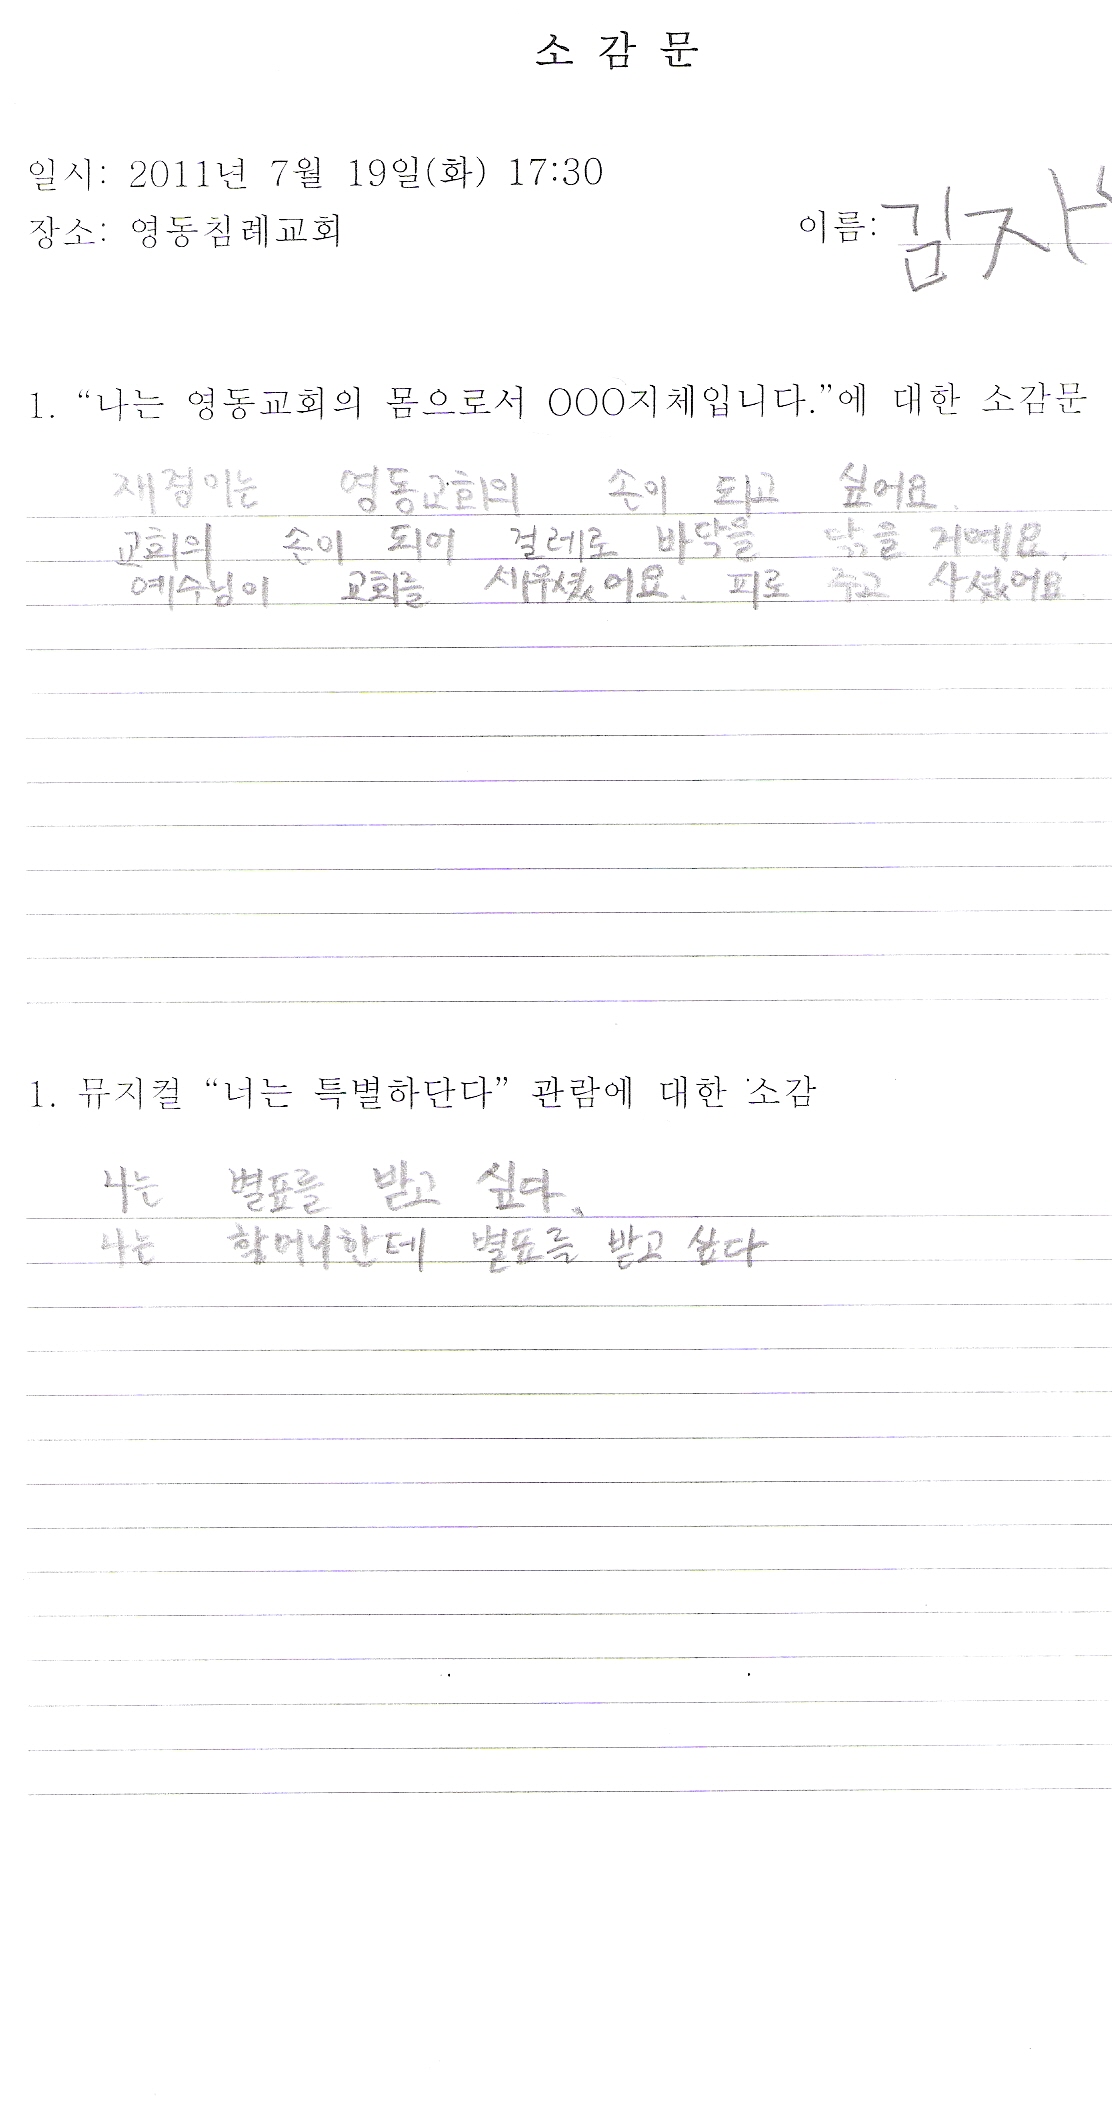 소 감 문
일시: 2011년 7월 19일(화) 17:30
장소: 영동침례교회
이름: 김
1. “나는 영동교회의 몸으로서 OOO지체입니다.”에 대한 소감문
영동교회의 손이 되고 싶어요.
교회의 손이 되어 걸레로 바닥을 닦을 거예요.
예수님이 교회를 세우셨어요. 피로 주고 사셨어요
1. 뮤지컬 “너는 특별하단다” 관람에 대한 소감
나는 별표를 받고 싶다.
나는 할머니한데 별표를 받고 싶다